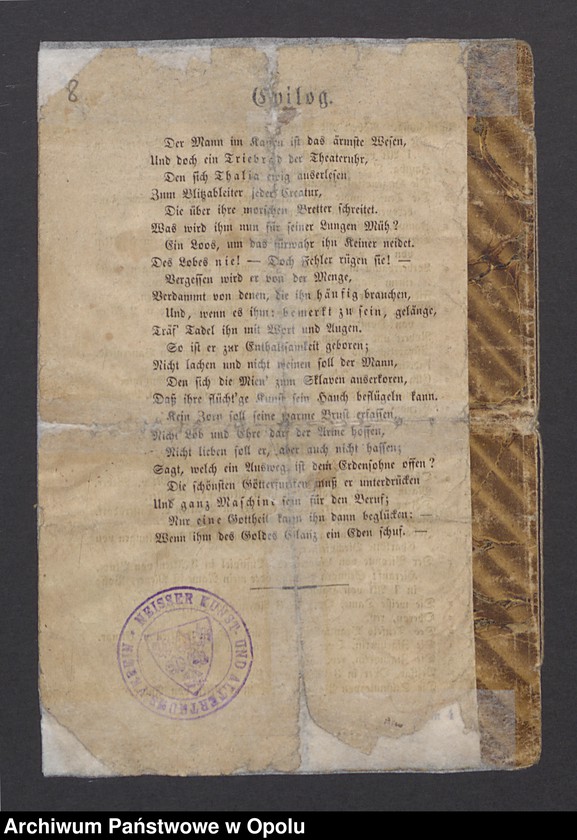 8
Epilog.
Der Mann im Kasten ist das ärmste Wesen,
Und doch ein Triebrad der Theateruhr,
Den sich Thalia ewig auserlesen
Zum Blitzableiter jeder Creatur,
Die über ihre morschen Bretter schreitet.
Was wird ihm nun für seiner Lungen Müh?
Ein Loos, um das fürwahr ihn Keiner neidet.
Des Lobes nie! — Doch Fehler rügen sie! —
Vergessen wird er von der Menge,
Verdammt von denen, die ihn häufig brauchen,
Und, wenn es ihm: bemerkt zu sein, gelänge,
Träf' Tadel ihn mit Wort und Augen.
So ist er zur Enthaltsamkeit geboren;
Nicht lachen und nicht weinen soll der Mann,
Den sich die Mien' zum Sklaven auserkoren,
Daß ihre flücht'ge Kunst sein Hauch beflügeln kann.
Kein Zorn soll seine warme Brust erfassen,
Nicht Lob und Ehre darf der Arme hoffen,
Nicht lieben soll er, aber auch nicht hassen;
Sagt, welch ein Ausweg ist dem Erdensohne offen?
Die schönsten Götterfunken muß er unterdrücken
Und ganz Maschine sein für den Beruf;
Nur eine Gottheit kann ihn dann beglücken: —
Wenn ihm des Goldes Glanz ein Eden schuf. —
NEISSER KUNST- UND ALTERTHUMSVEREIN
Archiwum Państwowe w Opolu